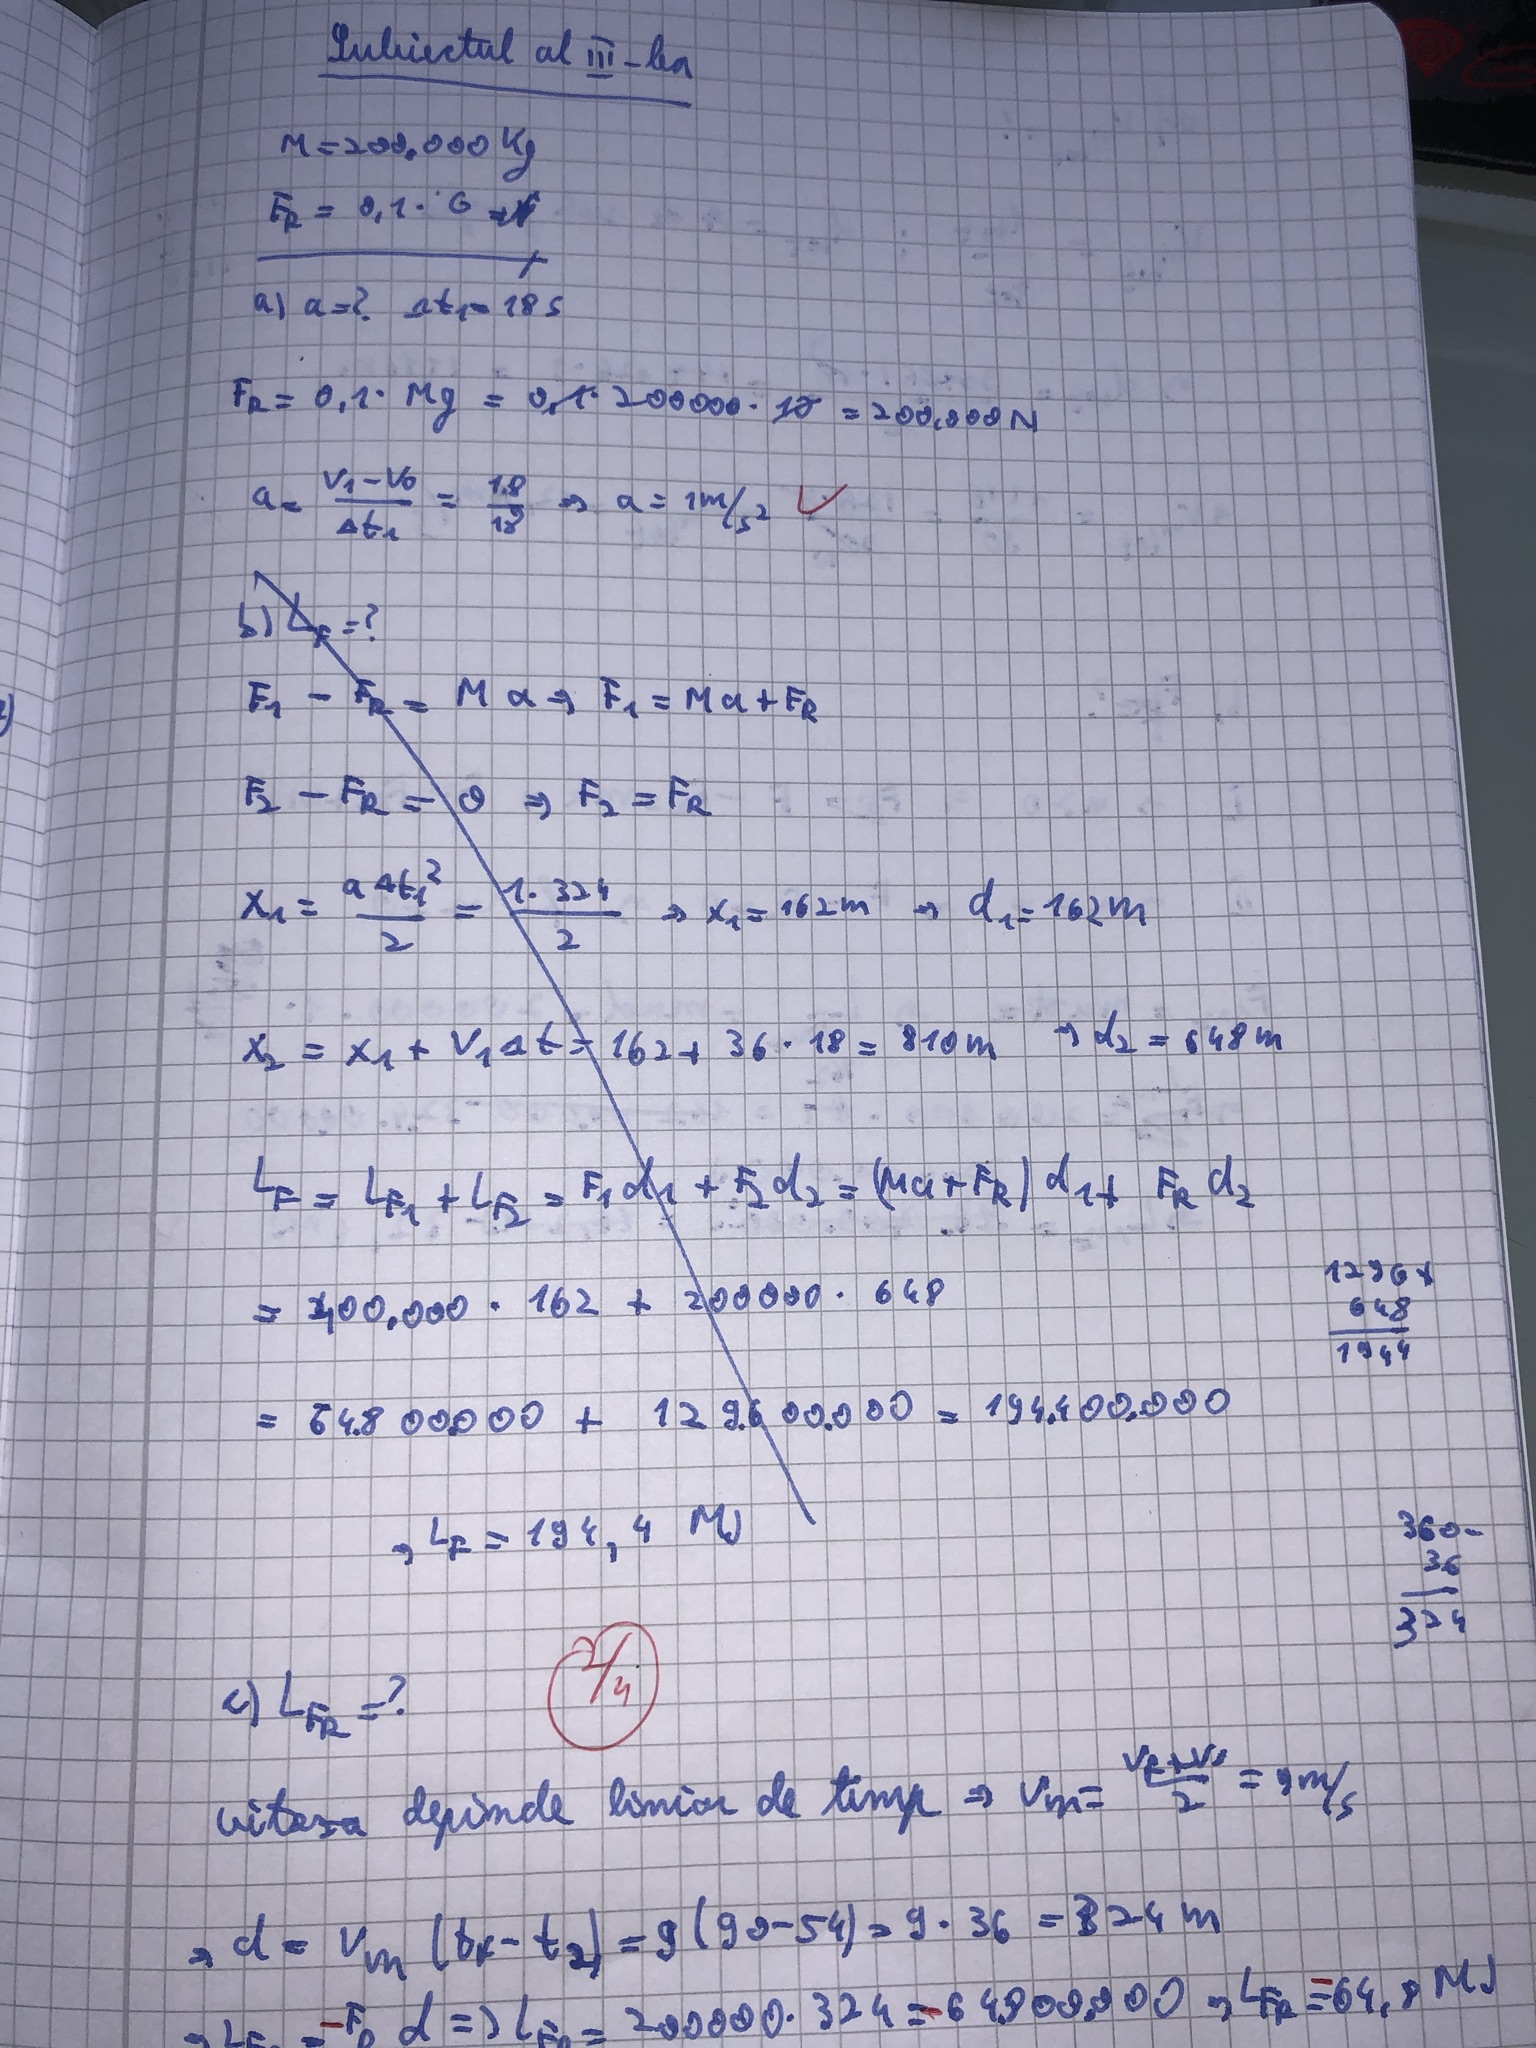 Subiectul al III-lea
M = 200.000 Kg
FR = 0,1 · G
a) a=? Δt₁= 18 s
FR = 0,1 · Mg = 0,1 · 200000 · 10 = 200.000 N
a = (V₁ - V₀)/Δt₁ = 18/18 ⇒ a = 1 m/s² ✓
b) LF = ?
F₁ - FR = M a ⇒ F₁ = Ma + FR
F₂ - FR = 0 ⇒ F₂ = FR
X₁ = aΔt₁²/2 = 1 · 324/2 ⇒ x₁ = 162 m ⇒ d₁ = 162 m
X₂ = x₁ + V₁Δt = 162 + 36 · 18 = 810 m ⇒ d₂ = 648 m
LF = LF₁ + LF₂ = F₁d₁ + F₂d₂ = (Ma + FR) d₁ + FR d₂
= 400.000 · 162 + 200000 · 648
1296 +
648
1944
= 64.800.000 + 129.600.000 = 194.400.000
⇒ LF = 194,4 MJ
360 -
36
324
2/4
c) LFR = ?
viteza depinde liniar de timp ⇒ Vm = /2 = 9 m/s
⇒ d = Vm (tx - t₂) = 9 (90 - 54) = 9 · 36 = 324 m
d => = 200000 · 324 = -64800.000 ⇒ LFR = -64,8 MJ